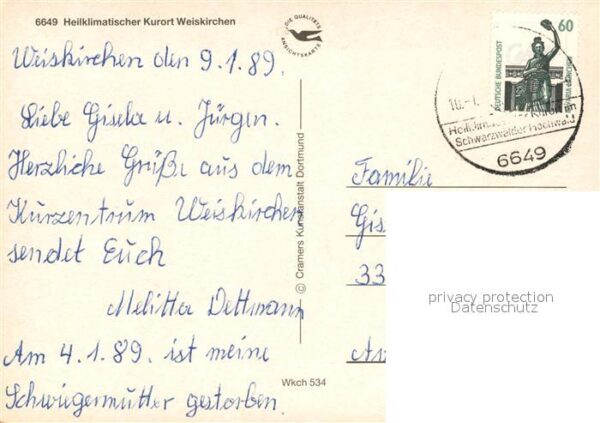 6649 Heilklimatischer Kurort Weiskirchen
DIE QUALITÄTS
ANSICHTSKARTE
Weiskirchen den 9.1.89.
Liebe Gisela u. Jürgen.
Herzliche Grüße aus dem
Kurzentrum Weiskirchen
sendet Euch
Melitta Dettmann
Am 4.1.89. ist meine
Schwiegermutter gestorben.
© Cramers Kunstanstalt Dortmund
Wkch 534
60
DEUTSCHE BUNDESPOST
BAVARIA MÜNCHEN
Schwarzwälder Hochwald
6649
Familie
Gis
33
privacy protection
Datenschutz